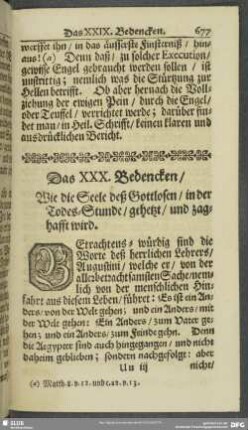 Das XXIX. Bedencken. 677
werffet ihn / in das äusserste Finsterniß / hin-
aus! (a) Denn daß / zu solcher Execution /
gewisse Engel gebraucht werden sollen / ist
unstrittig; nemlich was die Stürtzung zur
Hellen betrifft. Ob aber hernach die Voll-
ziehung der ewigen Pein / durch die Engel /
oder Teuffel / verrichtet werde; darüber fin-
det man / in Heil. Schrifft / keinen klaren und
ausdrücklichen Bericht.
Das XXX. Bedencken /
Wie die Seele deß Gottlosen / in der
Todes-Stunde / gehetzt / und zag-
hafft wird.
BEtrachtens-würdig sind die
Worte deß herrlichen Lehrers /
Augustini / welche er / von der
allerbetrachtsamsten Sache / nem-
lich von der menschlichen Hin-
fahrt aus diesem Leben / führet: Es ist ein An-
ders / von der Welt gehen; und ein Anders / mit
der Welt gehen: Ein Anders / zum Vater ge-
hen; und ein Anders / zum Feinde gehn. Denn
die Aegypter sind auch hingegangen / und nicht
daheim geblieben; sondern nachgefolgt: aber
Uu iij nicht /
(a) Matth. 8. v. 12. und c. 22. v. 13.